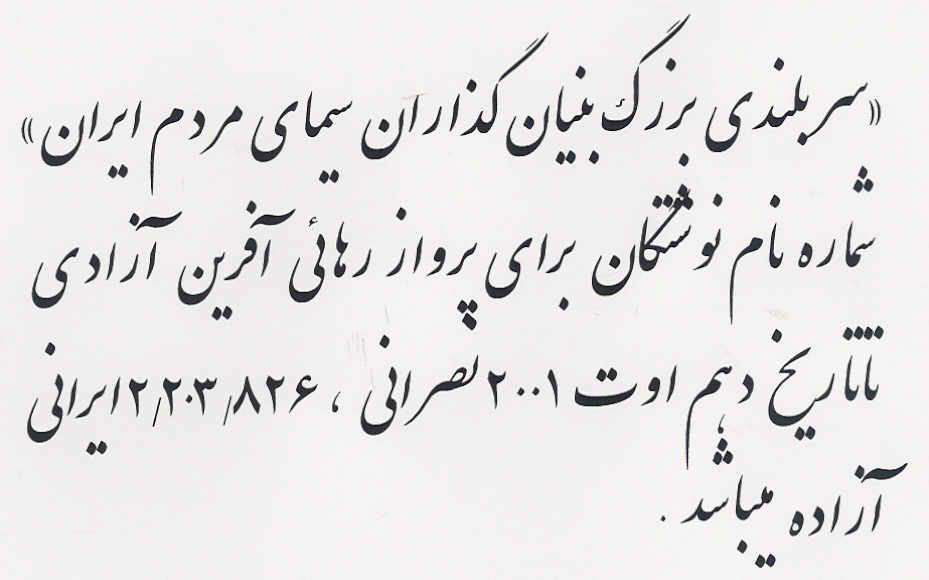 «سربلندی بزرگ بنیان گذاران سیمای مردم ایران»
شماره نام نوشتگان برای پرواز رهائی آفرین آزادی
تا تاریخ دهم اوت ۲۰۰۱ نصرانی ، ۲٫۲۰۳٫۸۲۶ ایرانی
آزاده میباشد .